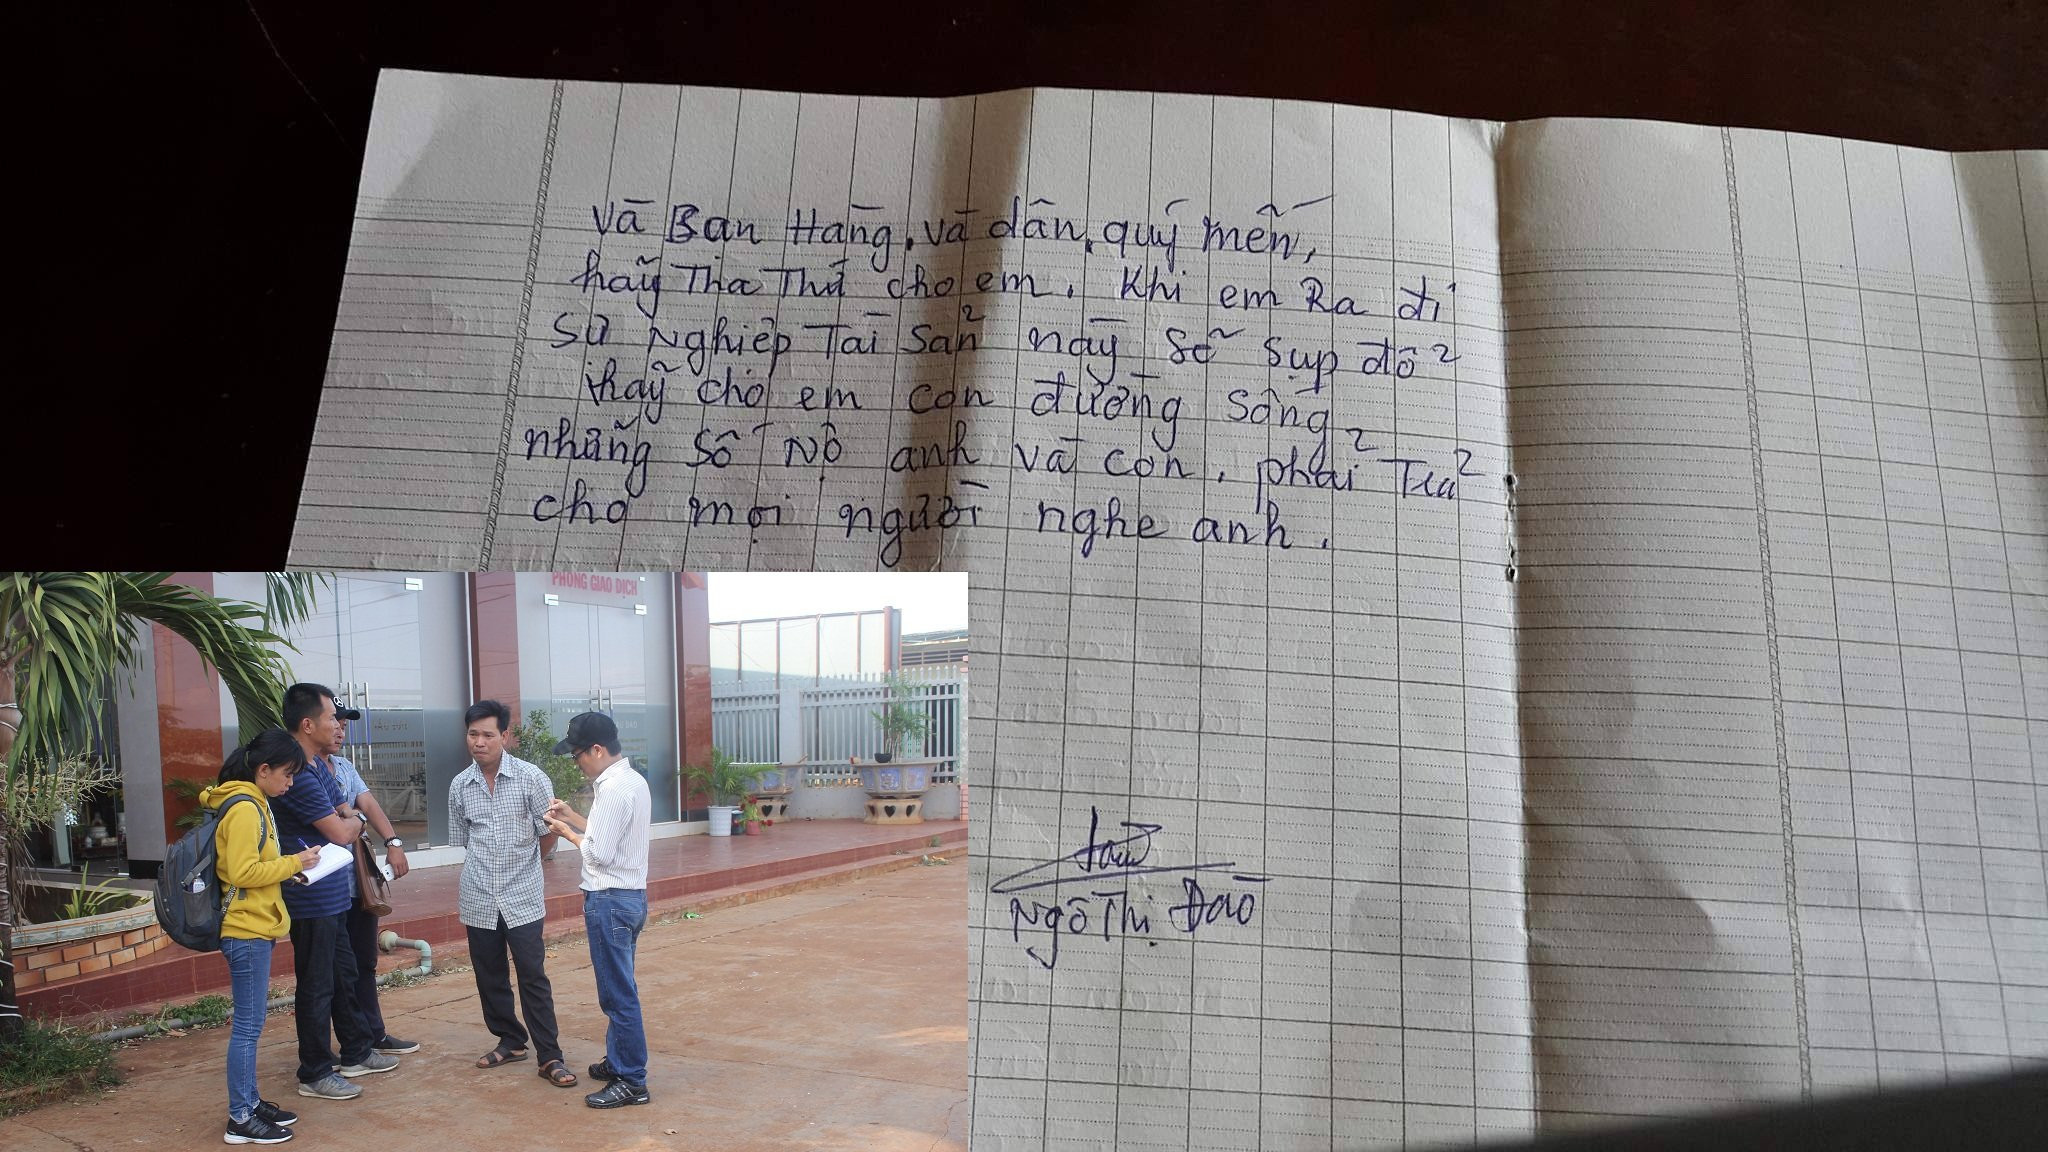 và Ban Hàng, và dân, quý mến,
hãy Tha Thứ cho em. Khi em Ra đi
sự Nghiệp Tài Sản này sẽ sụp đổ
hãy cho em con đường sống
những số Nợ anh và con, phải Trả
cho mọi người nghe anh.
Ngô Thị Đào
PHÒNG GIAO DỊCH